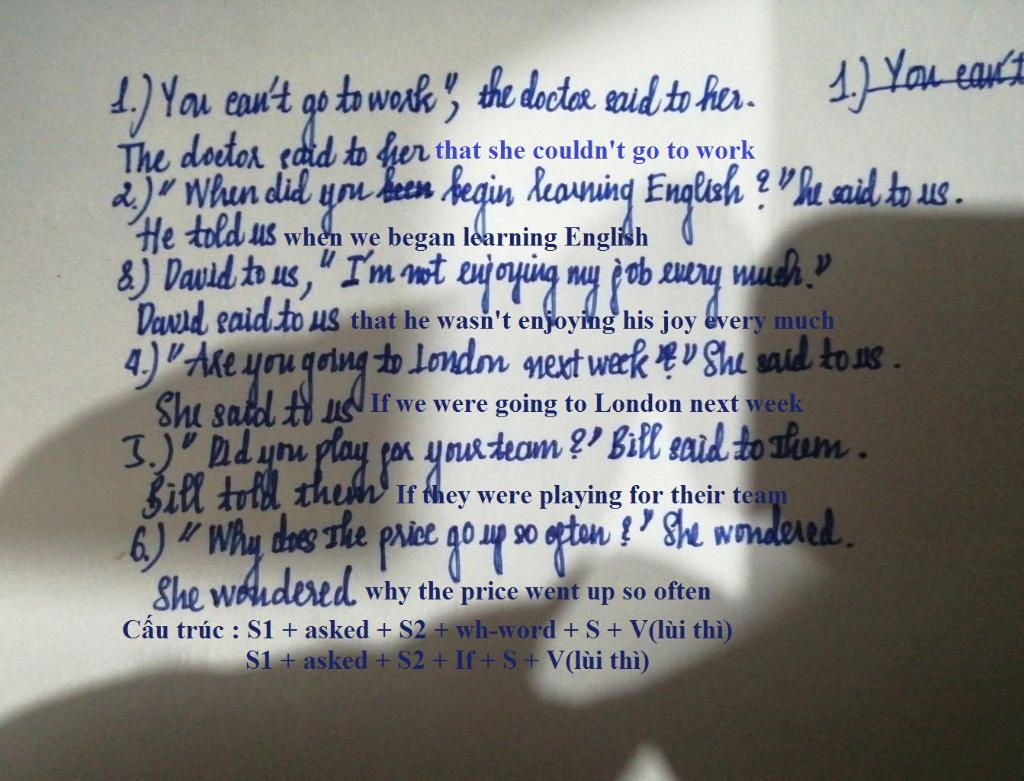 1.) You can't go to work", the doctor said to her. 1.) You can't
The doctor said to her that she couldn't go to work
2.) "When did you been begin learning English ?" he said to us.
He told us when we began learning English
3.) David to us, "I'm not enjoying my job every much."
David said to us that he wasn't enjoying his joy every much
4.) "Are you going to London next week ?" She said to us.
She said to us If we were going to London next week
5.) "Did you play for your team ?" Bill said to them.
Bill told them If they were playing for their team
6.) "Why does the price go up so often ?" She wondered.
She wondered why the price went up so often
Cấu trúc : S1 + asked + S2 + wh-word + S + V(lùi thì)
S1 + asked + S2 + If + S + V(lùi thì)